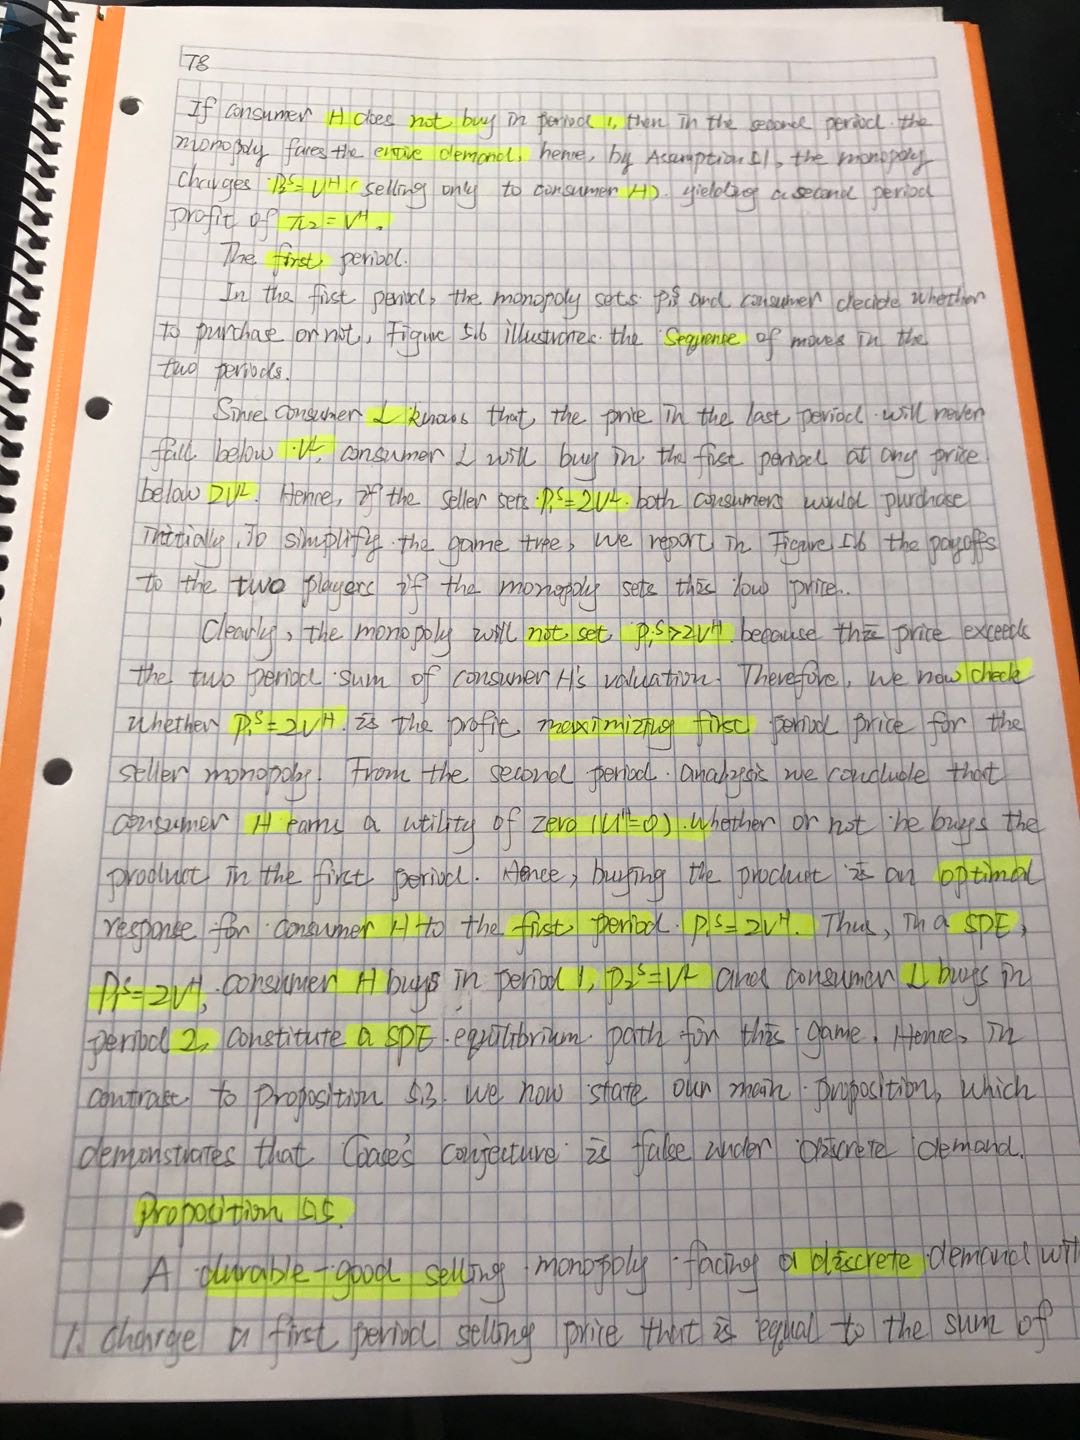 T8
If consumer H does not buy in period 1, then in the second period the
monopoly faces the entire demand, hence, by Assumption 5.1, the monopoly
charges P₂ˢ = Vᴴ (selling only to consumer H) yielding a second period
profit of π₂ = Vᴴ.
The first period.
In the first period, the monopoly sets P₁ˢ and consumer decide whether
to purchase or not, Figure 5.6 illustrates the sequence of moves in the
two periods.
Since consumer L knows that, the price in the last period will never
fall below Vᴸ, consumer L will buy in the first period at any price
below 2Vᴸ. Hence, if the seller sets P₁ˢ = 2Vᴸ both consumers would purchase
initially. To simplify the game tree, we report in Figure 5.6 the payoffs
to the two players if the monopoly sets this low price.
Clearly, the monopoly will not set P₁ˢ > 2Vᴴ because this price exceeds
the two period sum of consumer H's valuation. Therefore, we now check
whether P₁ˢ = 2Vᴴ is the profit maximizing first period price for the
seller monopoly. From the second period analysis we conclude that
consumer H earns a utility of zero (Uᴴ=0) whether or not he buys the
product in the first period. Hence, buying the product is an optimal
response for consumer H to the first period P₁ˢ = 2Vᴴ. Thus, in a SPE,
P₁ˢ = 2Vᴴ, consumer H buys in period 1, P₂ˢ = Vᴸ and consumer L buys in
period 2, constitute a SPE equilibrium path for this game. Hence, in
contrast to proposition 5.3 we now state our main proposition, which
demonstrates that Coase's conjecture is false under discrete demand.
Proposition 5.5.
A durable-good selling monopoly facing a discrete demand will
1. charge a first period selling price that is equal to the sum of